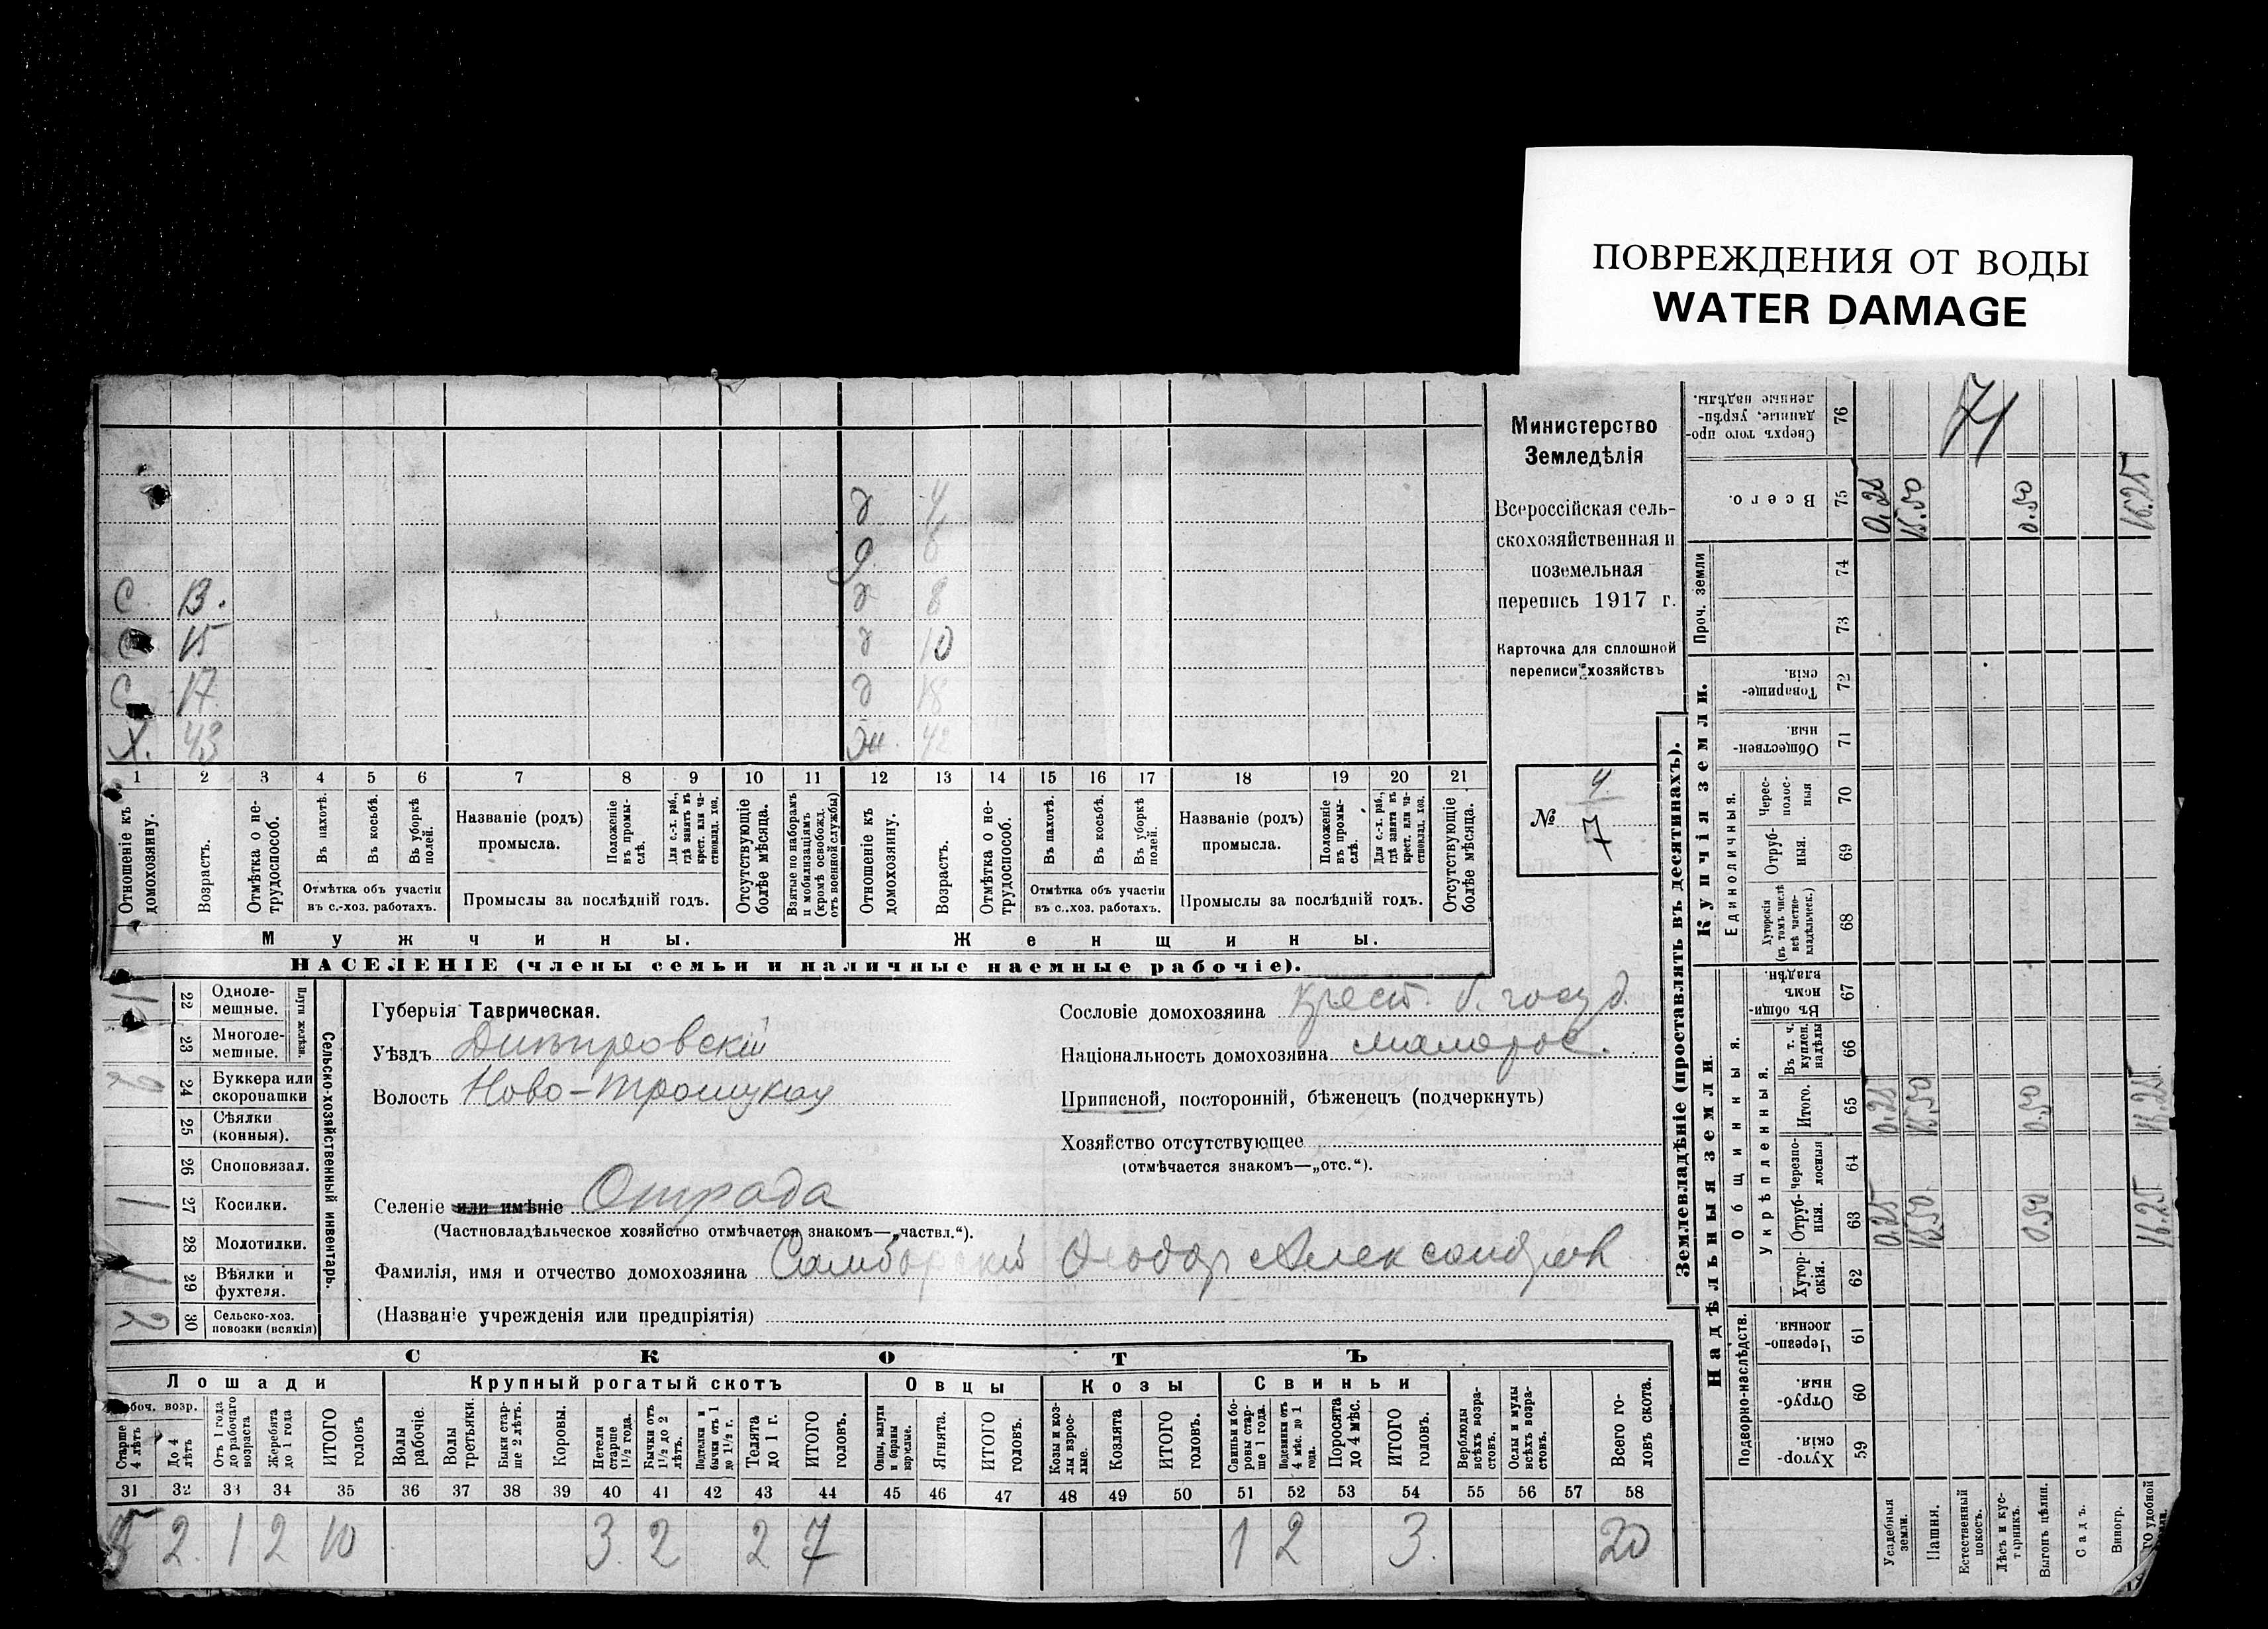 ПОВРЕЖДЕНИЯ ОТ ВОДЫ
WATER DAMAGE
Министерство
Земледѣлія
Всероссійская сель-
скохозяйственная и
поземельная
перепись 1917 г.
Карточка для сплошной
переписи хозяйствъ
№ 4
7
71
д 4
д 6
с 13. д 8
с 15 д 10
с 17 д 18
Х. 43 ж. 42
1 2 3 4 5 6 7 8 9 10 11 12 13 14 15 16 17 18 19 20 21
Отношеніе къ домохозяину.
Возрастъ.
Отмѣтка о не-трудоспособ.
Въ пахотѣ.
Въ косьбѣ.
Въ уборкѣ полей.
Отмѣтка объ участіи
въ с.-хоз. работахъ.
Названіе (родъ)
промысла.
Положеніе въ промы-слѣ.
Для с.-х. раб., гдѣ занятъ въ крест. или ча-стновлад. хоз.
Промыслы за послѣдній годъ.
Отсутствующіе болѣе мѣсяца.
Взятые по наборамъ и мобилизаціямъ (кромѣ освобожд. отъ военной службы)
Отношеніе къ домохозяину.
Возрастъ.
Отмѣтка о не-трудоспособ.
Въ пахотѣ.
Въ косьбѣ.
Въ уборкѣ полей.
Отмѣтка объ участіи
въ с.-хоз. работахъ.
Названіе (родъ)
промысла.
Положеніе въ промы-слѣ.
Для с.-х. раб., гдѣ занята въ крест. или ча-стновлад. хоз.
Промыслы за послѣдній годъ.
Отсутствующіе болѣе мѣсяца.
Мужчины. Женщины.
НАСЕЛЕНІЕ (члены семьи и наличные наемные рабочіе).
Сельско-хозяйственный инвентарь.
Плуги желѣзн.
1 22 Одноле-мешные.
23 Многоле-мешные.
2 24 Буккера или скоропашки
25 Сѣялки (конныя).
26 Сноповязал.
1 27 Косилки.
28 Молотилки.
1 29 Вѣялки и фухтеля.
2 30 Сельско-хоз. повозки (всякія)
Губернія Таврическая.
Уѣздъ Днѣпровскій
Волость Ново-Троицкая
Селеніе или имѣніе Отрада
(Частновладѣльческое хозяйство отмѣчается знакомъ—„частвл.“).
Фамилія, имя и отчество домохозяина Самборскій Ѳеодор Александров
(Названіе учрежденія или предпріятія)
Сословіе домохозяина Крест. б. госуд.
Національность домохозяина малорос.
Приписной, посторонній, бѣженецъ (подчеркнуть)
Хозяйство отсутствующее
(отмѣчается знакомъ—„отс.“).
СКОТЪ
Лошади Крупный рогатый скотъ Овцы Козы Свиньи
Рабоч. возр.
Старше 4 лѣтъ
До 4 лѣтъ
Отъ 1 года до рабочаго возраста
Жеребята до 1 года
ИТОГО головъ
Волы рабочіе.
Волы третьяки.
Быки стар-ше 2 лѣтъ.
Коровы.
Нетели старше 1½ года.
Бычки отъ 1½ до 2 лѣтъ.
Подтелки и бычки отъ 1 до 1½ г.
Телята до 1 г.
ИТОГО головъ.
Овцы, валухи и бараны взрослые.
Ягнята.
ИТОГО головъ.
Козы и коз-лы взрос-лые.
Козлята
ИТОГО головъ.
Свиньи и бо-ровы стар-ше 1 года.
Подсвинки отъ 4 мѣс. до 1 года.
Поросята до 4 мѣс.
ИТОГО головъ.
Верблюды всѣхъ возра-стовъ.
Ослы и мулы всѣхъ возра-стовъ.
Всего го-ловъ скота.
31 32 33 34 35 36 37 38 39 40 41 42 43 44 45 46 47 48 49 50 51 52 53 54 55 56 57 58
5 2 1 2 10 3 2 2 7 1 2 3 20
Землевладѣніе (проставлять въ десятинахъ).
Надѣльныя земли. Купчія земли. Проч. земли
Подворно-наслѣдств.
Общинныя.
Укрѣпленныя.
Единоличныя.
Хутор-скія. 59
Отруб-ныя. 60
Черезпо-лосныя 61
Хутор-скія. 62
Отруб-ныя. 63
Черезпо-лосныя 64
Итого. 65
Въ т. ч. куплен. надѣлы 66
Въ общин-номъ владѣн. 67
Хуторскія (въ томъ числѣ всѣ частно-владѣльческ.) 68
Отруб-ныя. 69
Черес-полос-ныя 70
Обществен-ныя 71
Товарище-скія. 72
73
74
Всего. 75
Сверхъ того про-данные, укрѣп-ленные надѣлы. 76
Усадебныя земли. 0.25 0.25 0.25
Пашня. 15.50 15.50 15.50
Естественный покосъ.
Лѣсъ и кус-тарникъ.
Выгонъ цѣлин. 0.50 0.50 0.50
Садъ.
Виногр.
ИТОГО удобной земли. 16.25 16.25 16.25